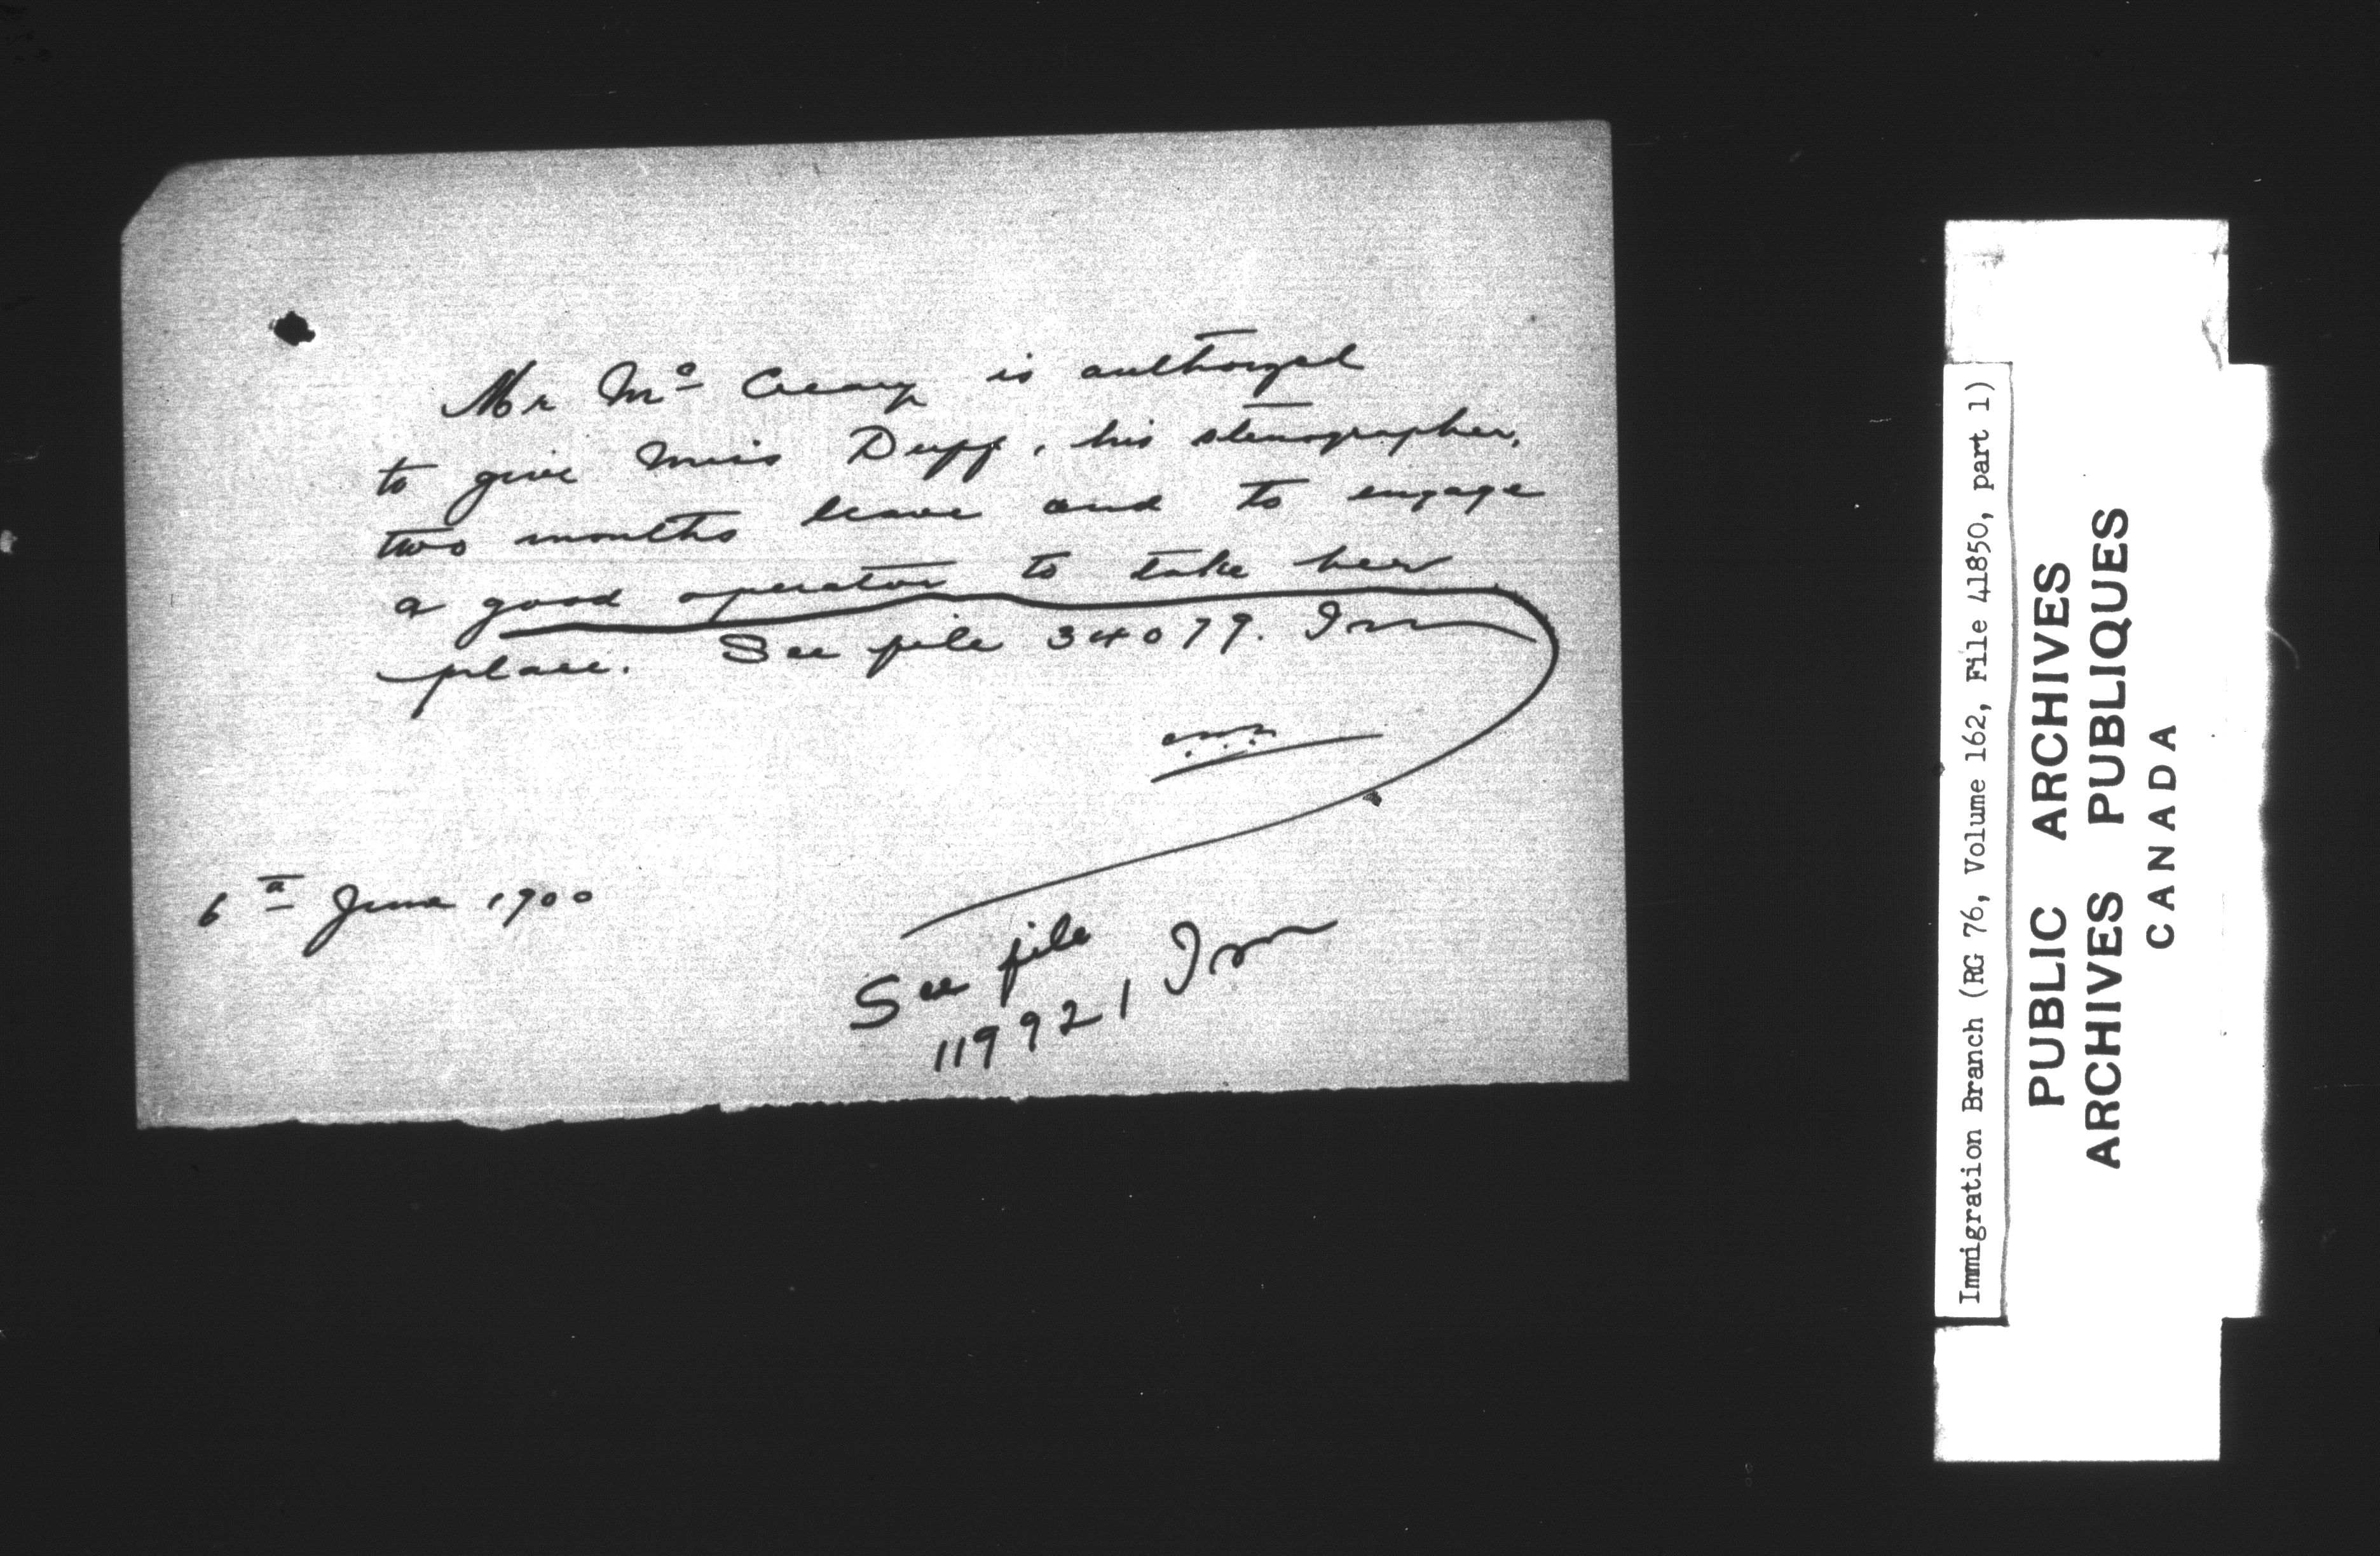 Mr Mc Creary is authorized
to give Miss Duff, his stenographer,
two months leave and to engage
a good operator to take her
place. See file 34079. Imm
6th June 1900
See file
119921 Imm
Immigration Branch (RG 76, Volume 162, File 41850, part 1)
PUBLIC ARCHIVES
ARCHIVES PUBLIQUES
CANADA